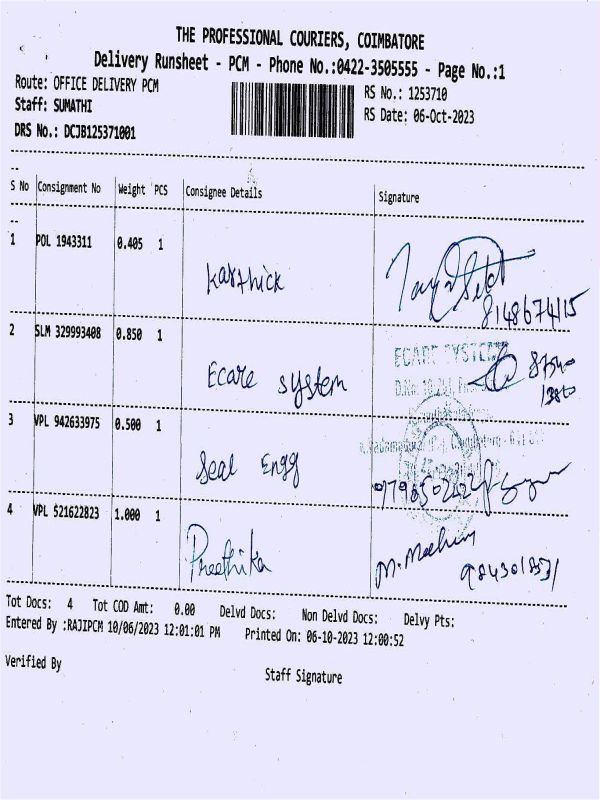 THE PROFESSIONAL COURIERS, COIMBATORE
Delivery Runsheet - PCM - Phone No.:0422-3505555 - Page No.:1
Route: OFFICE DELIVERY PCM
RS No.: 1253710
Staff: SUMATHI
RS Date: 06-Oct-2023
DRS No.: DCJB125371001
S No Consignment No Weight PCS Consignee Details Signature
1 POL 1943311 0.405 1
Karthick
8148674115
2 SLM 329993408 0.850 1
ECARE SYSTEM
Ecare system
3 VPL 942633975 0.500 1
Seal Engg
4 VPL 521622823 1.000 1
Preethika
Tot Docs: 4 Tot COD Amt: 0.00 Delvd Docs: Non Delvd Docs: Delvy Pts:
Entered By :RAJIPCM 10/06/2023 12:01:01 PM Printed On: 06-10-2023 12:00:52
Verified By
Staff Signature